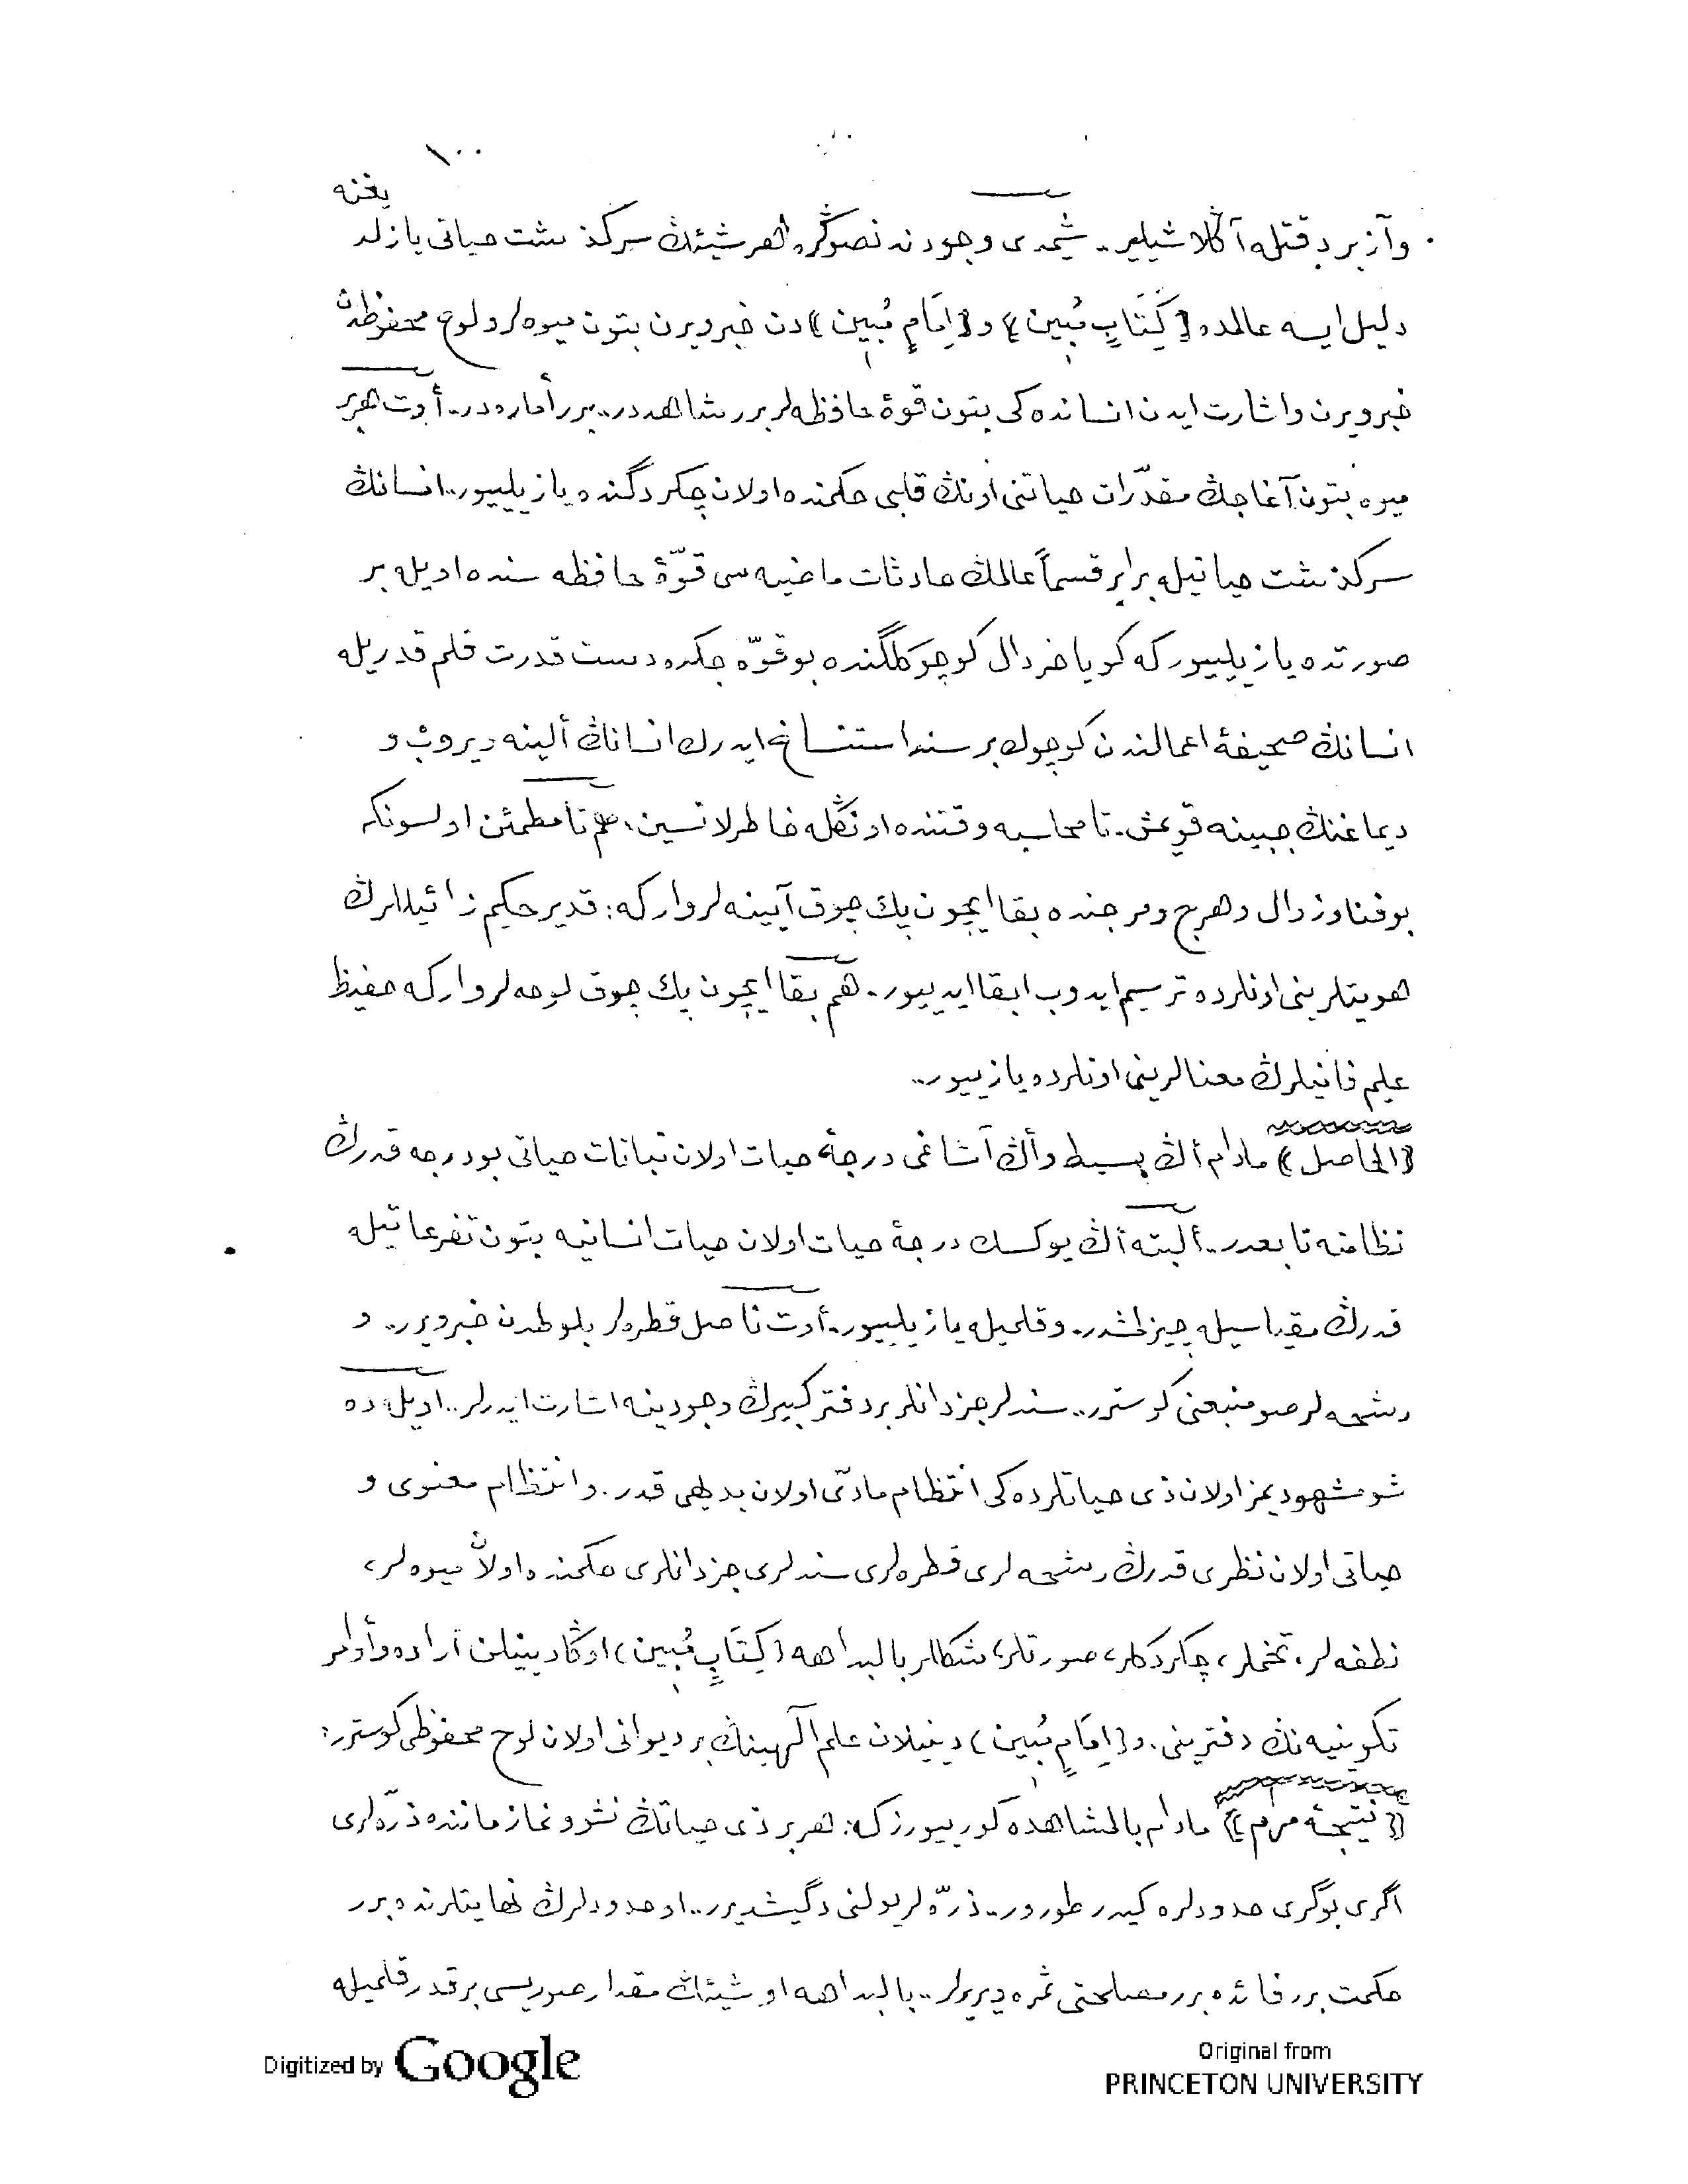 ١٠٠
يغنه
وآز بر دقتله آڭلاشيلير.. شيمدى وجودندنصوڭره هر شيئڭ سركذشت حياتى يازلد
دليل ايسه عالمده ﴿كِتَابٍ مُبِين﴾ و ﴿اِمَامٍ مُبِين﴾ دن خبر ويرن بتون ميوه لر و لوح محفوظدن
خبر ويرن و اشارت ايدن انسانده كى بتون قوۀ حافظه لر برر شاهددر.. برر أماره در.. أوت هر بر
ميوه بتون آغاجڭ مقدّرات حياتنى اونڭ قلبى حكمنده اولان چكردگنده يازيلييور.. انسانڭ
سركذشت حياتيله برابر قسماً عالمڭ حادثات ماضيه سى قوّۀ حافظه سنده اويله بر
صورتده يازيلييور كه كويا خردال كوچوكلگنده بو قوّه جكده دست قدرت قلم قدريله
انسانڭ صحيفۀ اعمالندن كوچوك بر سند استنساخ ايدرك انسانڭ ألينه ويروب و
دماغنڭ جيبينه قويمش.. تا محاسبه وقتنده اونڭله خاطرلاتسين، هم تا مطمئن اولسونكه
بو فنا و زوال و هرج و مرجنده بقا ايچون پك چوق آيينه لر وار كه: قدير حكيم زائيللرڭ
هويتلرينى اونلرده ترسيم ايدوب ابقا ايدييور.. هم بقا ايچون پك چوق لوحه لر وار كه حفيظ
عليم فانيلرڭ معنالرينى اونلرده يازييور..
﴿الحاصل﴾ مادام أڭ بسيط و أڭ آشاغى درجۀ حيات اولان نباتات حياتى بو درجه قدرڭ
نظامنه تابعدر.. ألبته أڭ يوكسك درجۀ حيات اولان حيات انسانيه بتون تفرعاتيله
قدرڭ مقياسيله چيزلمشدر.. و قلميله يازيلييور.. أوت ناصل قطره لر بلوطدن خبر ويرر.. و
رشحه لر صو منبعنى كوسترر.. سندلر جزدانلر بر دفتر كبيرڭ وجودينه اشارت ايدرلر.. اويله ده
شو مشهوديمز اولان ذى حياتلرده كى انتظام مادّى اولان بديهى قدر. و انتظام معنوى و
حياتى اولان نظرى قدرڭ رشحه لرى قطره لرى سندلرى جزدانلرى حكمنده اولان ميوه لر،
نطفه لر، تخملر، چكردكلر، صورتلر، شكللر بالبداهه ﴿كِتَابٍ مُبِين﴾ اوكا دينيلن اراده و أوامر
تكوينيه نڭ دفترينى. و ﴿اِمَامٍ مُبِين﴾ دينيلان علم الٓهينڭ بر ديوانى اولان لوح محفوظى كوسترر:
﴿نتيجۀ مرام﴾ مادام بالمشاهده كورييورز كه: هر بر ذى حياتڭ نشو و نما زماننده ذرّه لرى
اگرى بوگرى حدودلره كيدر طورور.. ذرّه لر يولنى دگيشديرر.. او حدودلرڭ نهايتلرنده برر
حكمت برر فائده برر مصلحتى ثمره ويريرلر.. بالبداهه او شيئڭ مقدار صوريسى بر قدر قلميله
Digitized by Google
Original from
PRINCETON UNIVERSITY